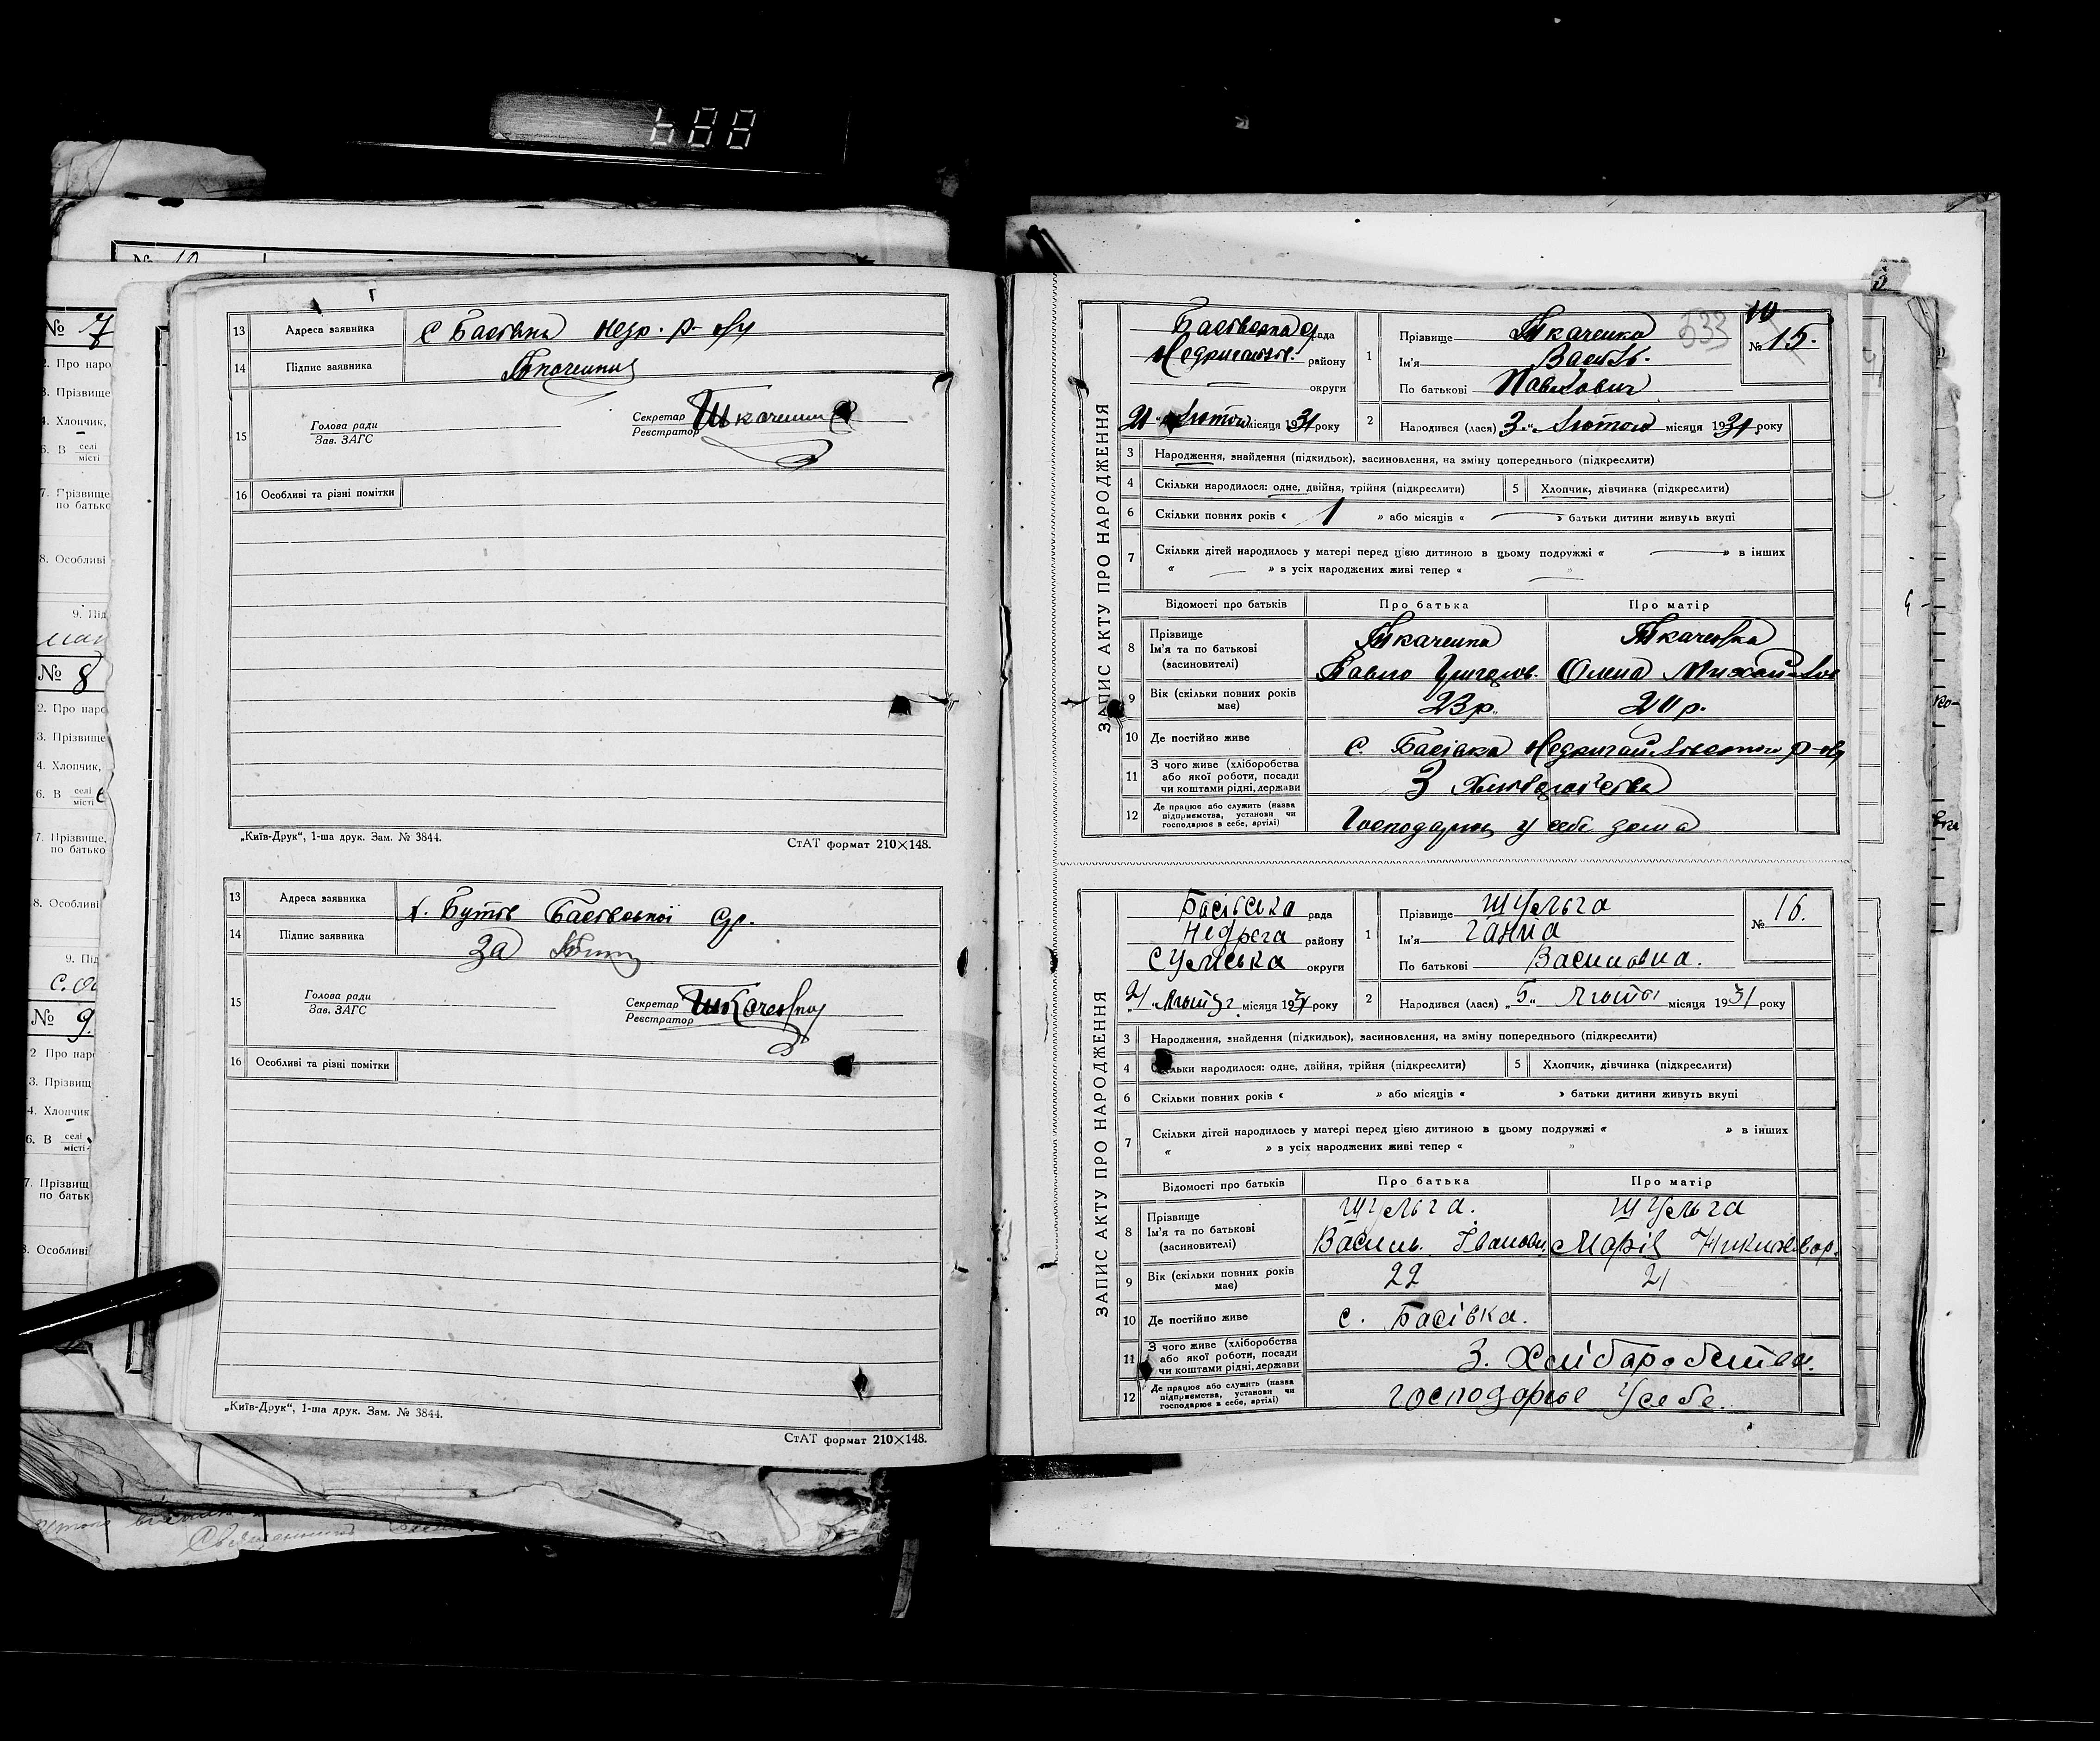 688
№ 10
№ 7
2. Про наро
3. Прізвище
4. Хлопчик,
6. В селі
місті
7. Прізвище
по батько
8. Особливі
9. Під
№ 8
2. Про наро
3. Прізвище
4. Хлопчик,
6. В селі
місті
7. Прізвище,
по батько
8. Особливі
9. Під
№ 9.
2 Про нар
3. Прізвищ
4. Хлопчик
6. В селі
місті
7. Прізвищ
по батьк
8. Особливі
13 Адреса заявника с Басівка Недр. р-ну
14 Підпис заявника Ткаченко
15 Голова ради
Зав. ЗАГС
Секретар Ткаченко
Реєстратор
16 Особливі та різні помітки
„Київ-Друк“, 1-ша друк. Зам. № 3844.
СтАТ формат 210×148.
13 Адреса заявника х. Бутів Басівської с/р.
14 Підпис заявника За
15 Голова ради
Зав. ЗАГС
Секретар Ткаченко
Реєстратор
16 Особливі та різні помітки
„Київ-Друк“, 1-ша друк. Зам. № 3844.
СтАТ формат 210×148.
ЗАПИС АКТУ ПРО НАРОДЖЕННЯ
Басівська рада
Недригайлів. району
округи
21 Лютого місяця 1931 року
533
10
№ 15.
1 Прізвище Ткаченко
Ім'я Василь.
По батькові Павлович
2 Народився (лася) „3“ Лютого місяця 1931 року
3 Народження, знайдення (підкидьок), засиновлення, на зміну попереднього (підкреслити)
4 Скільки народилося: одне, двійня, трійня (підкреслити) 5 Хлопчик, дівчинка (підкреслити)
6 Скільки повних років « 1 » або місяців « — » батьки дитини живуть вкупі
7 Скільки дітей народилось у матері перед цією дитиною в цьому подружжі « — » в інших
« — » в усіх народжених живі тепер « — »
Відомості про батьків Про батька Про матір
8 Прізвище
Ім'я та по батькові
(засиновителі)
Ткаченко Ткаченко
Павло Григоров. Олена Михайлов
9 Вік (скільки повних років має) 23 р. 20 р.
10 Де постійно живе с. Басівка Недригайлівського р-ну
11 З чого живе (хліборобства
або якої роботи, посади
чи коштами рідні, держави
З Хліборобства
12 Де працює або служить (назва
підприємства, установи чи
господарює в себе, артілі)
Господарює у себе дома
ЗАПИС АКТУ ПРО НАРОДЖЕННЯ
Басівська рада
Недрега району
Сумська округи
„21“ Лютого місяця 1931 року
№ 16.
1 Прізвище Шульга
Ім'я Ганна
По батькові Василовна.
2 Народився (лася) „5“ Лютого місяця 1931 року
3 Народження, знайдення (підкидьок), засиновлення, на зміну попереднього (підкреслити)
4 Скільки народилося: одне, двійня, трійня (підкреслити) 5 Хлопчик, дівчинка (підкреслити)
6 Скільки повних років « » або місяців « » батьки дитини живуть вкупі
7 Скільки дітей народилось у матері перед цією дитиною в цьому подружжі « » в інших
« » в усіх народжених живі тепер « »
Відомості про батьків Про батька Про матір
8 Прізвище
Ім'я та по батькові
(засиновителі)
Шульга. Шульга
Василь. Іванови Марія
9 Вік (скільки повних років має) 22 21
10 Де постійно живе с. Басівка.
11 З чого живе (хліборобства
або якої роботи, посади
чи коштами рідні, держави
З. Хлібаробства.
12 Де працює або служить (назва
підприємства, установи чи
господарює в себе, артілі)
господарює Усебе.